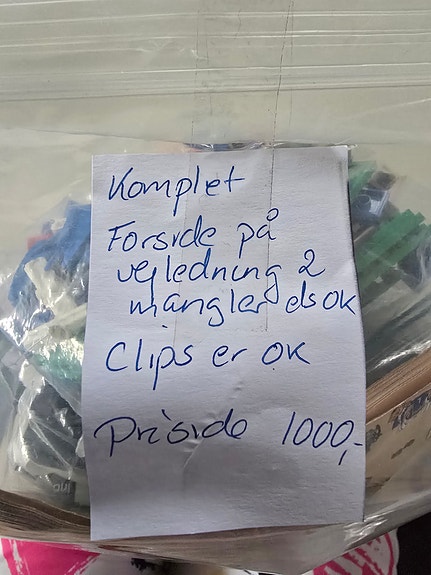 Komplet
Forside på
vejledning 2
mangler els ok
Clips er ok
Priside 1000,-